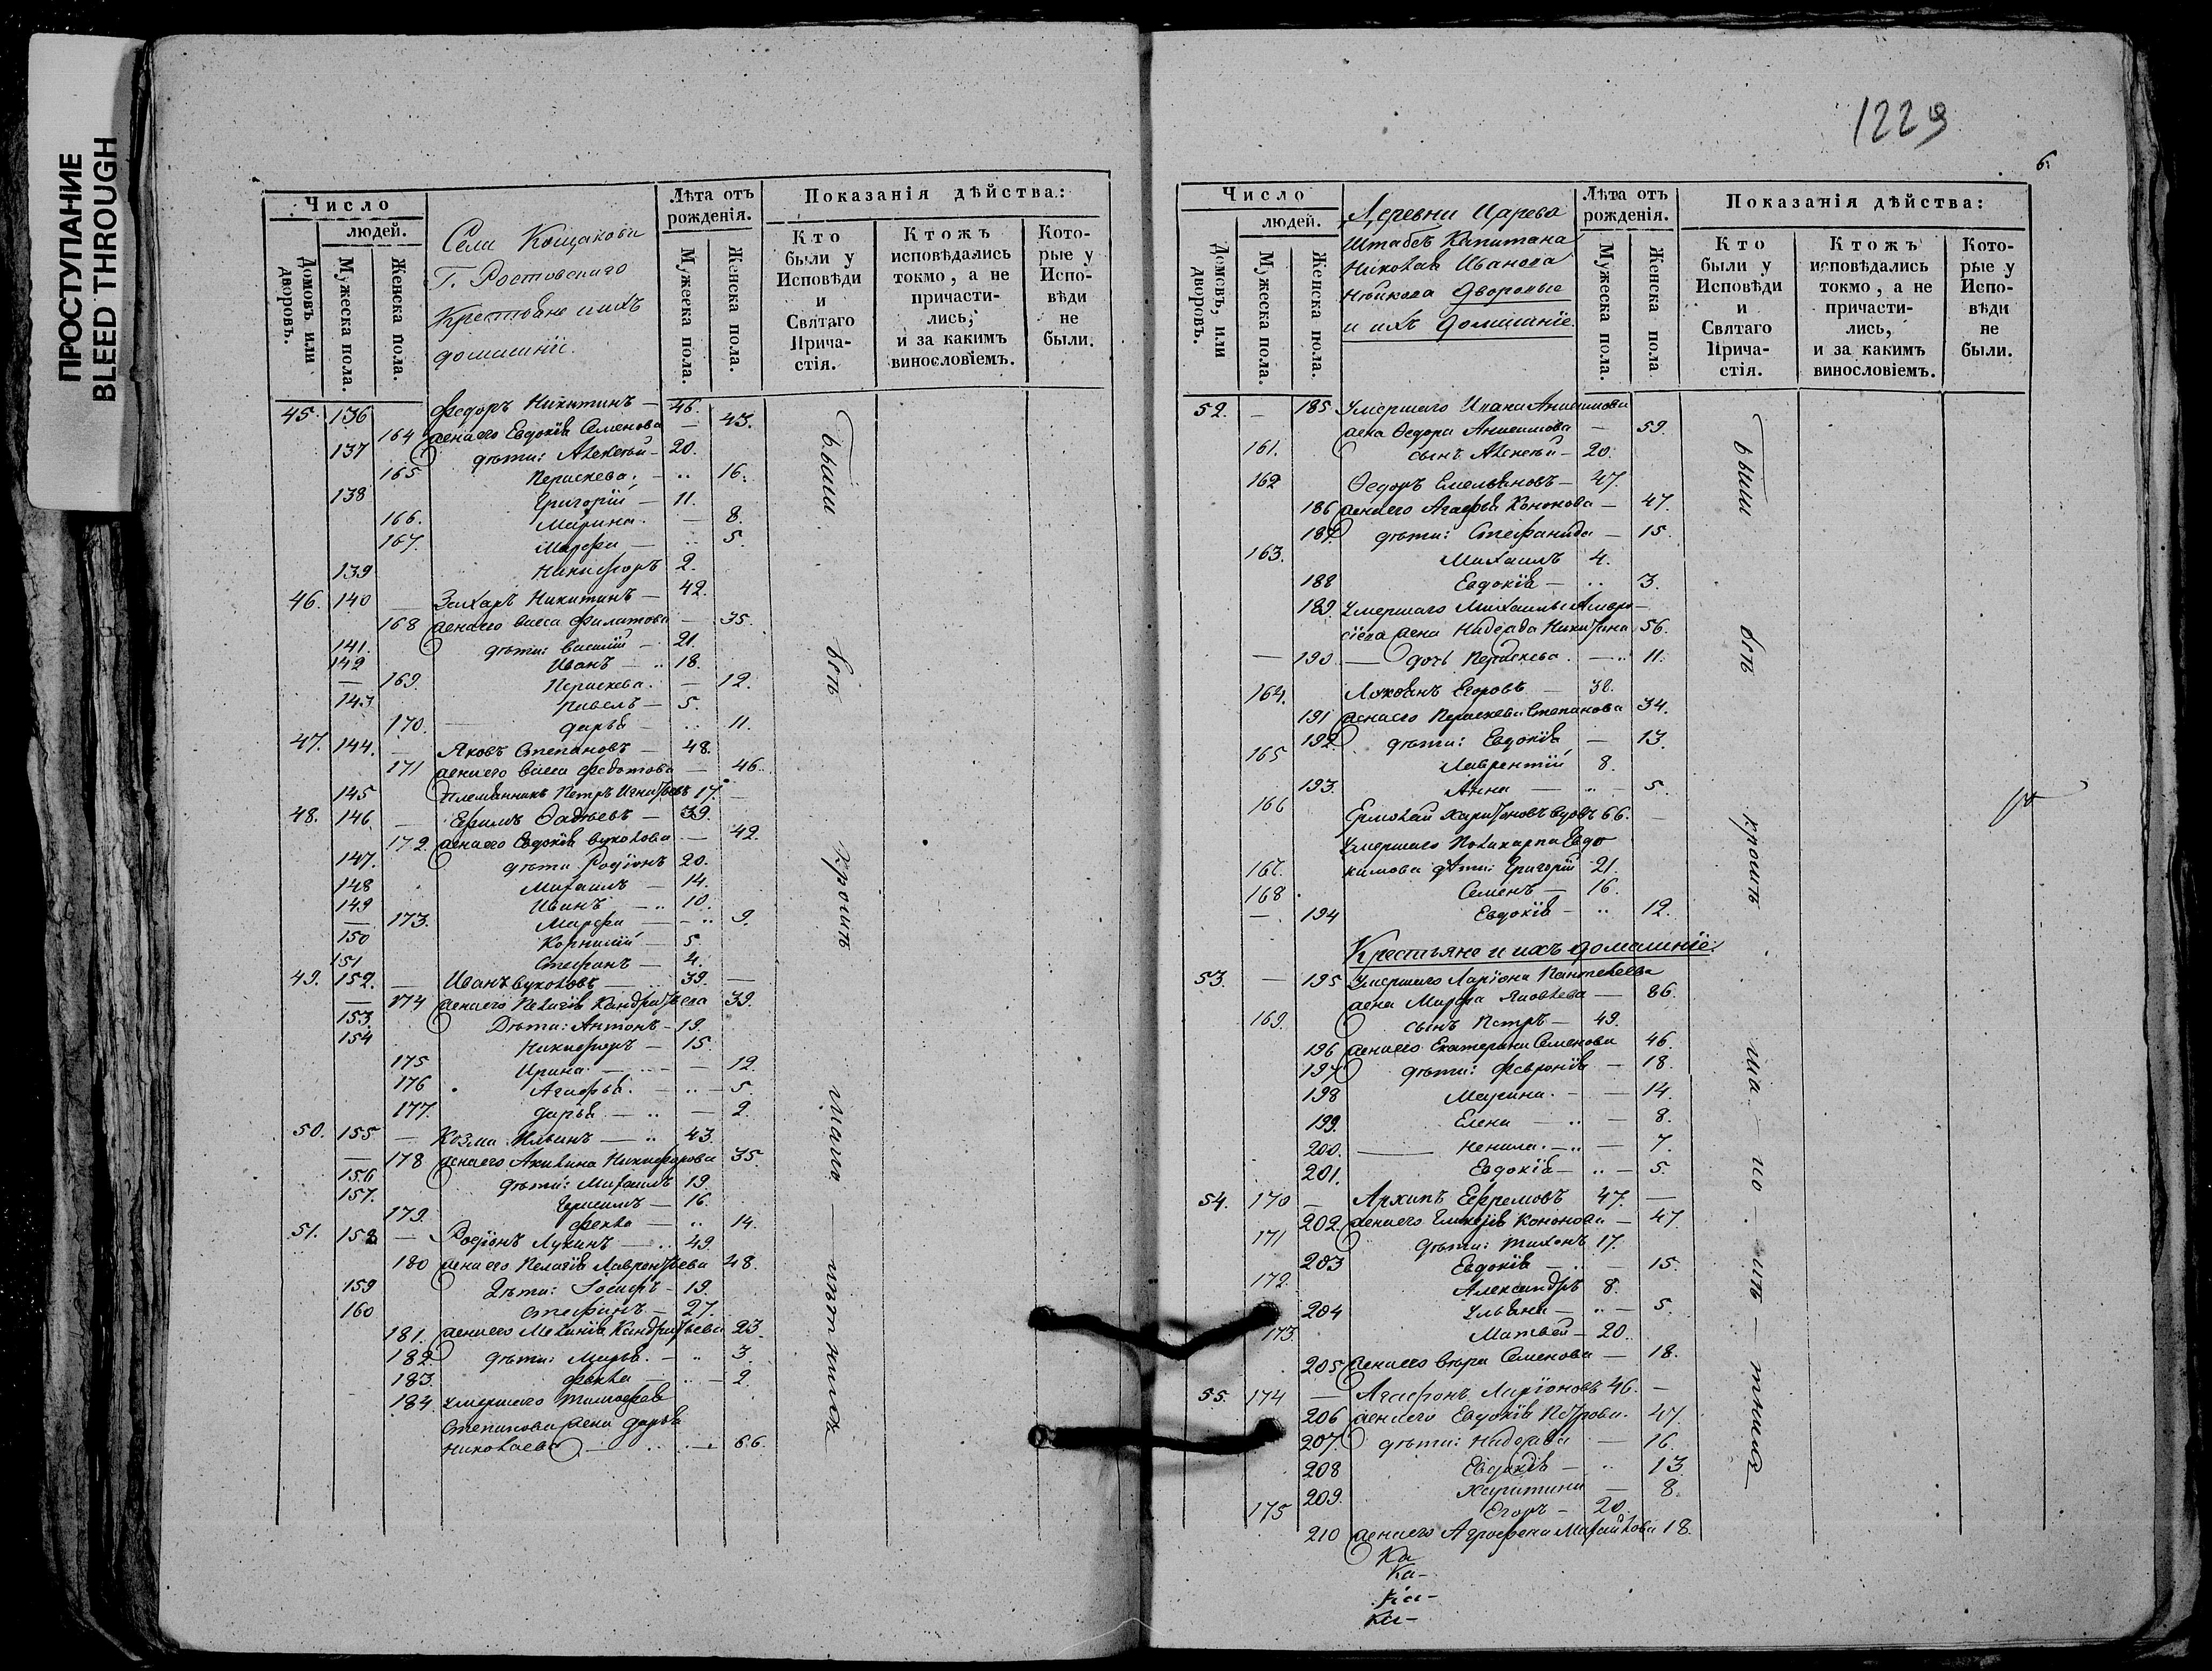 ПРОСТУПАНИЕ
BLEED THROUGH
Число
людей.
Домовъ или дворовъ.
Мужеска пола.
Женска пола.
Села Кощакова
Г. Ростовскаго
Крестьяне и ихъ
домашніе.
Лѣта отъ рожденія.
Мужеска пола.
Женска пола.
Показанія дѣйства:
Кто были у Исповѣди и Святаго Прича-стія.
Ктожъ исповѣдались токмо, а не причасти-лись, и за какимъ винословіемъ.
Кото-рые у Испо-вѣди не были.
45. 136 Федоръ Никитинъ — 46.
164 жена его Евдокія Семенова — 43.
137 дѣти: Алексѣй — 20.
165 Параскева. — 16.
138 Григорій — 11.
166. Марина. — 8.
167. Марфа — 5.
139 Никифоръ 2.
46. 140 — Захаръ Никитинъ — 42.
168 жена его Васса Филатова — 35.
141. дѣти: Василій — 21.
142 Иванъ — 18.
— 169. Параскева. — 12.
143 Павелъ — 5.
170. Дарья — 11.
47. 144. — Яковъ Степановъ — 48.
171 жена его Васса Федотова — 46.
145 Племянникъ Петръ Игнатьевъ 17. —
48. 146. — Ефимъ Фадѣевъ — 39.
172. жена его Евдокія Вуколова — 42.
147. дѣти Родіонъ 20.
148 Михаилъ — 14.
149 Иванъ — 10.
— 173. Марфа — 9.
150 Корнилій — 5.
151 Стефанъ — 4.
49. 152. — Иванъ Вуколовъ — 39. —
— 174 жена его Пелагія Кандратьева 39.
153. Дѣти: Антонъ — 19.
154 Никифоръ — 15.
175 Ирина. — 12.
176 Агафья. — 5.
177. Дарья — 2.
50. 155 — Козма Ильинъ — 43.
— 178 жена его Акилина Никифорова 35.
156 дѣти: Михаилъ 19.
157. Герасимъ — 16.
179. Фекла — 14.
51. 158 — Родіонъ Лукинъ — 49.
180 жена его Пелагія Лаврентьева 48.
159 Дѣти: Іосифъ — 19.
160 Стефанъ — 27.
181. жена его Меланія Кандратьева 23.
182 дѣти: Марья. — 3.
183. Фекла — 2.
184. Умершаго Тимофея
Степанова жена Дарья
Николаева — 66.
Были всѣ кромѣ мало — лѣтнихъ
1229
6.
Число
людей.
Домовъ, или дворовъ.
Мужеска пола.
Женска пола.
Деревни Царева
Штабсъ Капитана
Николая Иванова
дворовые
и ихъ домашніе.
Лѣта отъ рожденія.
Мужеска пола.
Женска пола
Показанія дѣйства:
Кто были у Исповѣди и Святаго Прича-стія.
Ктожъ исповѣдались токмо, а не причасти-лись, и за какимъ винословіемъ.
Кото-рые у Испо-вѣди не были.
52. — 185. Умершаго Ивана Анисимова
жена Федора Анисимова — 59.
161. сынъ Алексѣй — 20.
162 Федоръ Емельяновъ — 47.
186 жена его Агафья Кононова — 47.
187. дѣти: Стефанида — 15.
163. Михаилъ 4.
188 Евдокія — 3.
189 Умершаго Михаила Амвро-
сіева жена Надежда Никитина 56.
— 190 — дочь Параскева. — 11.
164. Лукьянъ Егоровъ — 38.
191 жена его Параскева Степанова 34.
192 дѣти: Евдокія — 13.
165 Лаврентій 8.
193. Анна — 5.
166 Ермолай Харитоновъ вдовъ 66. —
Умершаго Поликарпа Евдо
кимова дѣти: Григорій 21.
167.
168. Семенъ — 16.
— 194 Евдокія — 12.
Крестьяне и ихъ домашніе.
53. — 195 Умершаго Ларіона Пантелеева
жена Марфа Яковлева — 86.
169. сынъ Петръ — 49.
196 жена его Екатерина Семенова 46.
197 дѣти: Февронія — 18.
198 Марина. — 14.
199. Елена — 8.
200. Ненила. — 7.
201. Евдокія — 5.
54. 170 — Архипъ Ефремовъ 47. —
202. жена его Гликерія Кононова — 47
171 дѣти: Тихонъ 17.
203 Евдокія — 15.
172. Александръ 8.
204 Ульяна — 5.
173. Матвей — 20.
205 жена его Вѣра Семенова — 18.
55. 174 — Агафонъ Ларіоновъ 46. —
206 жена его Евдокія Петрова. 47.
207. дѣти: Надежда — 16.
208 Евдокія — 13.
209. Харитина — 8.
175 Егоръ — 20.
210 жена его Агрофена Михайлова 18.
Ка
Ка-
Ка-
Ка-
Были всѣ кромѣ ма — ло — лѣ — тнихъ